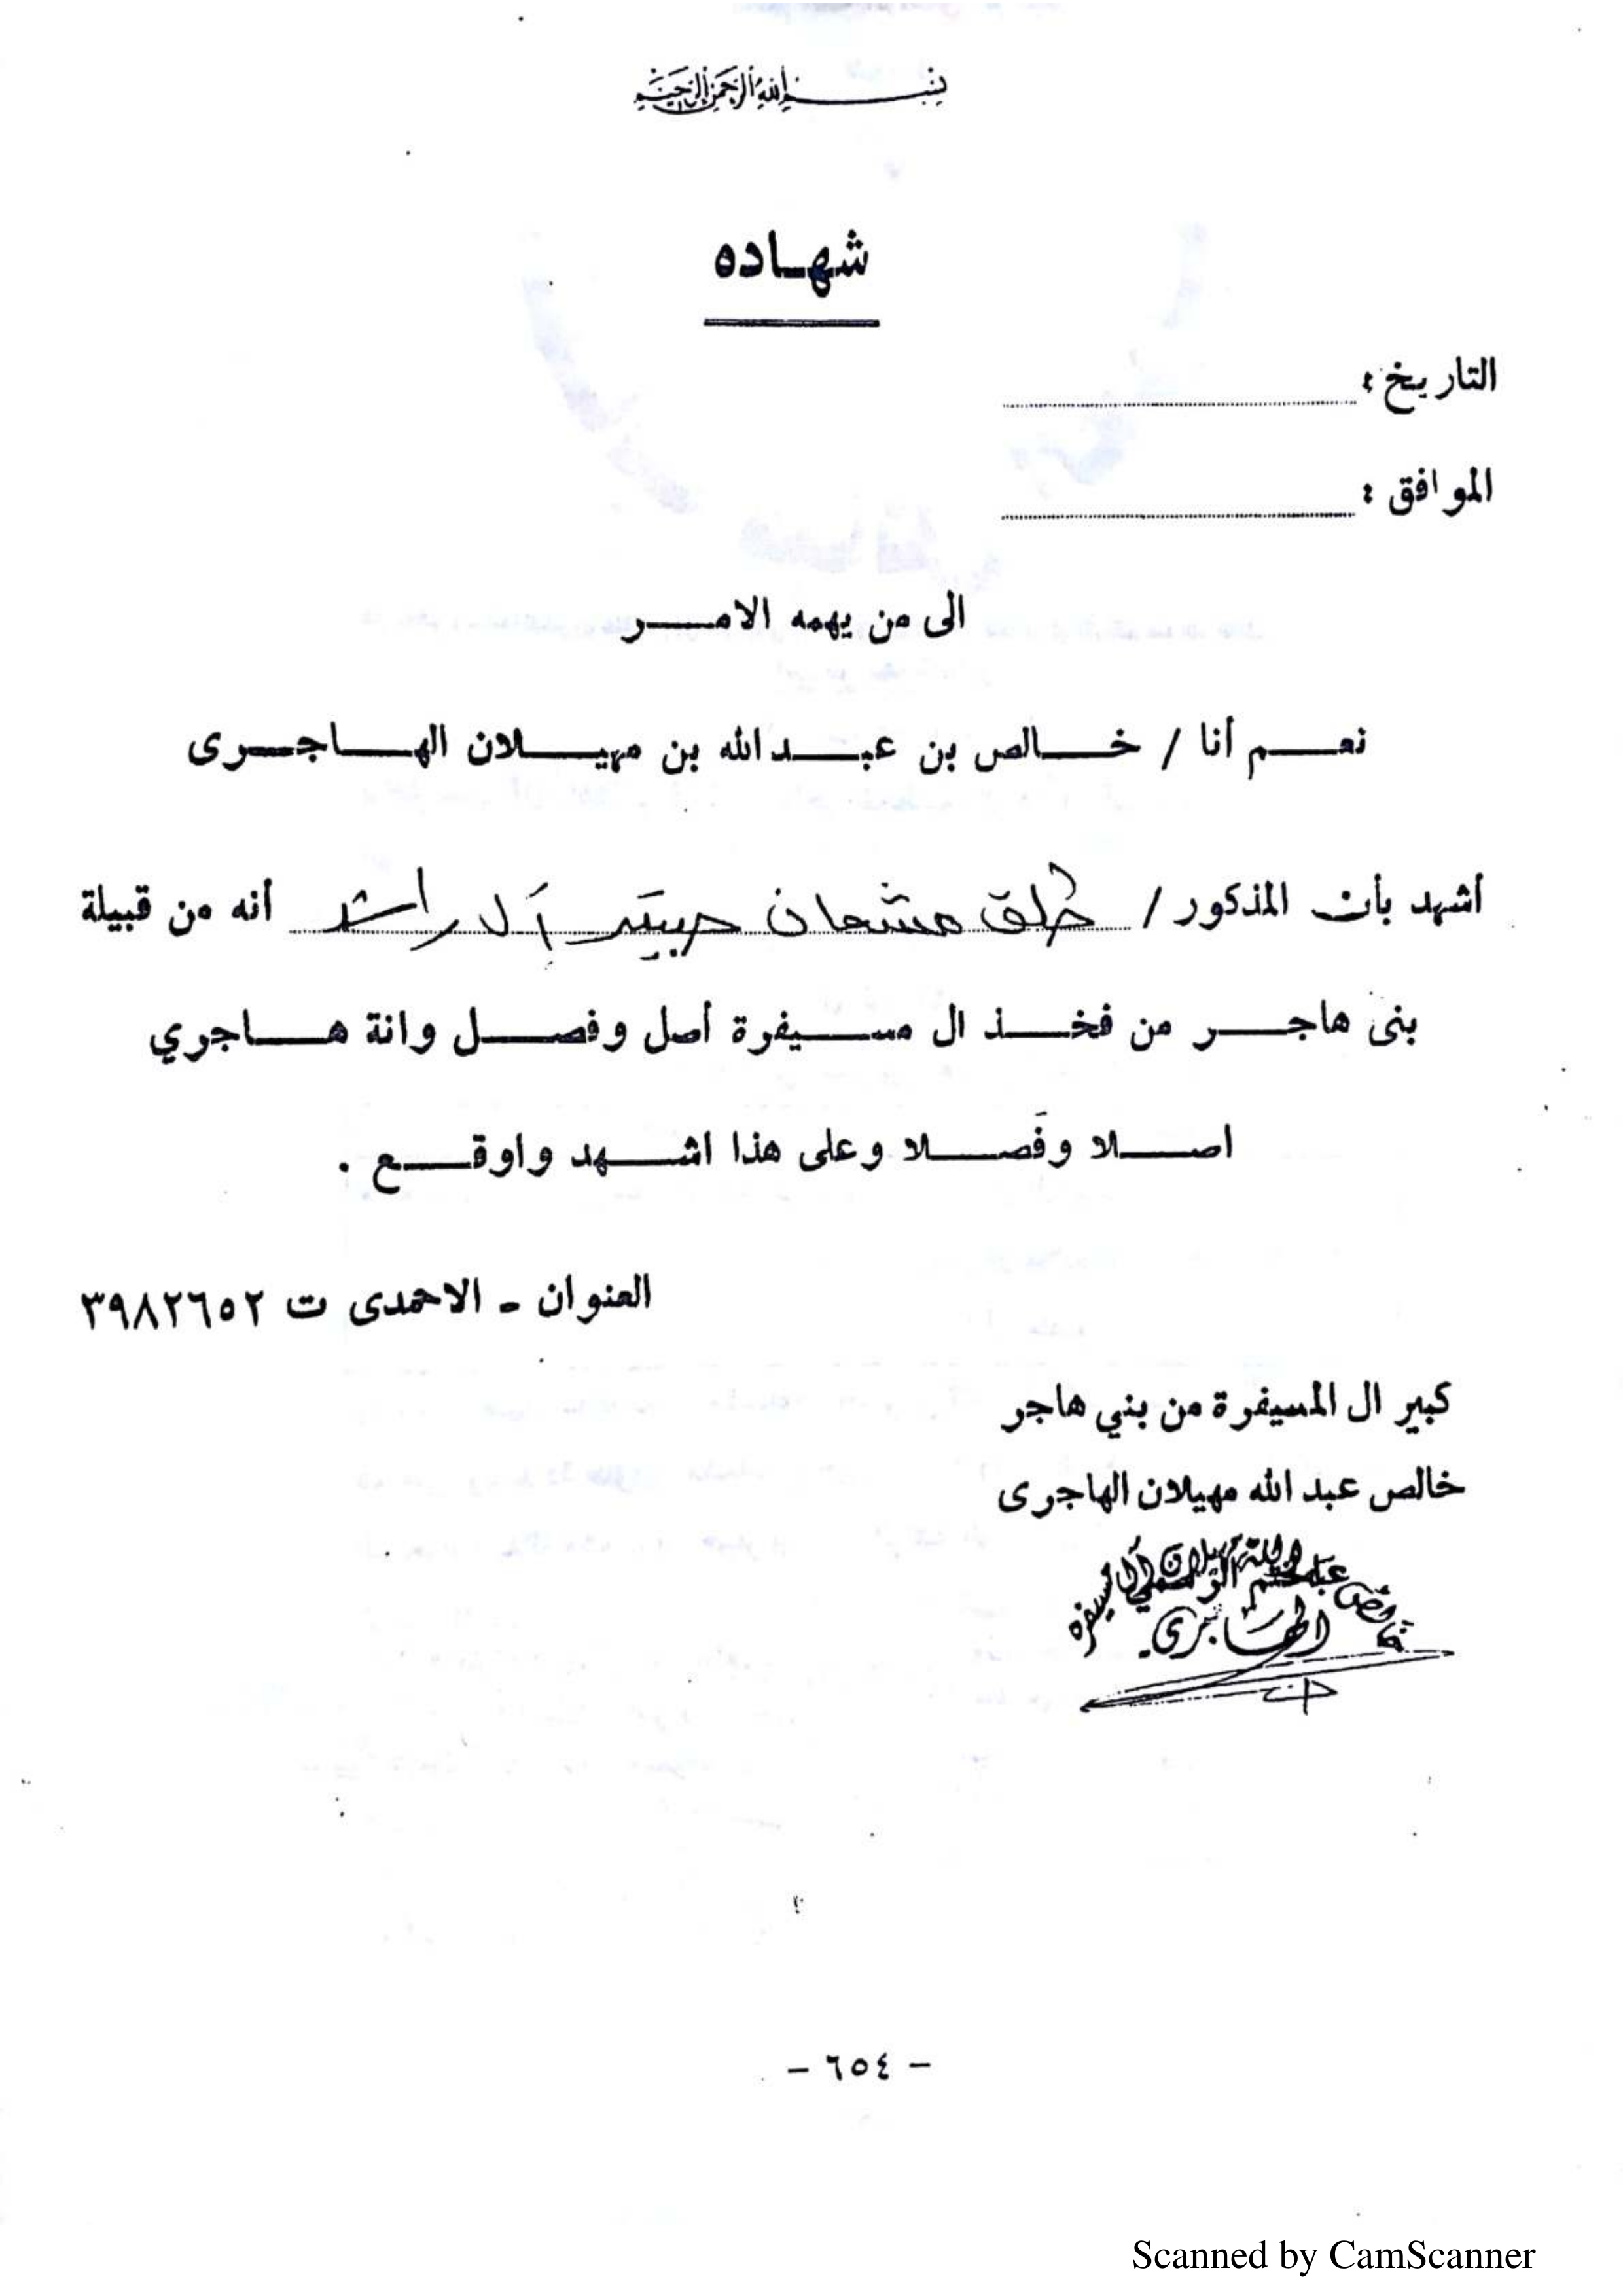 بسم الله الرحمن الرحيم
شهاده
التاريخ :
الموافق :
الى من يهمه الامر
نعم أنا / خالص بن عبدالله بن مهيلان الهاجرى
أشهد بأن المذكور / خلق مشعان آل راشد أنه من قبيلة
بنى هاجر من فخذ ال مسيفرة أصل وفصل وانة هاجري
اصلا وفصلا وعلى هذا اشهد واوقع .
العنوان - الاحمدى ت ٣٩٨٢٦٥٢
كبير ال المسيفرة من بني هاجر
خالص عبد الله مهيلان الهاجرى
الهاجري
- ٦٥٤ -
Scanned by CamScanner